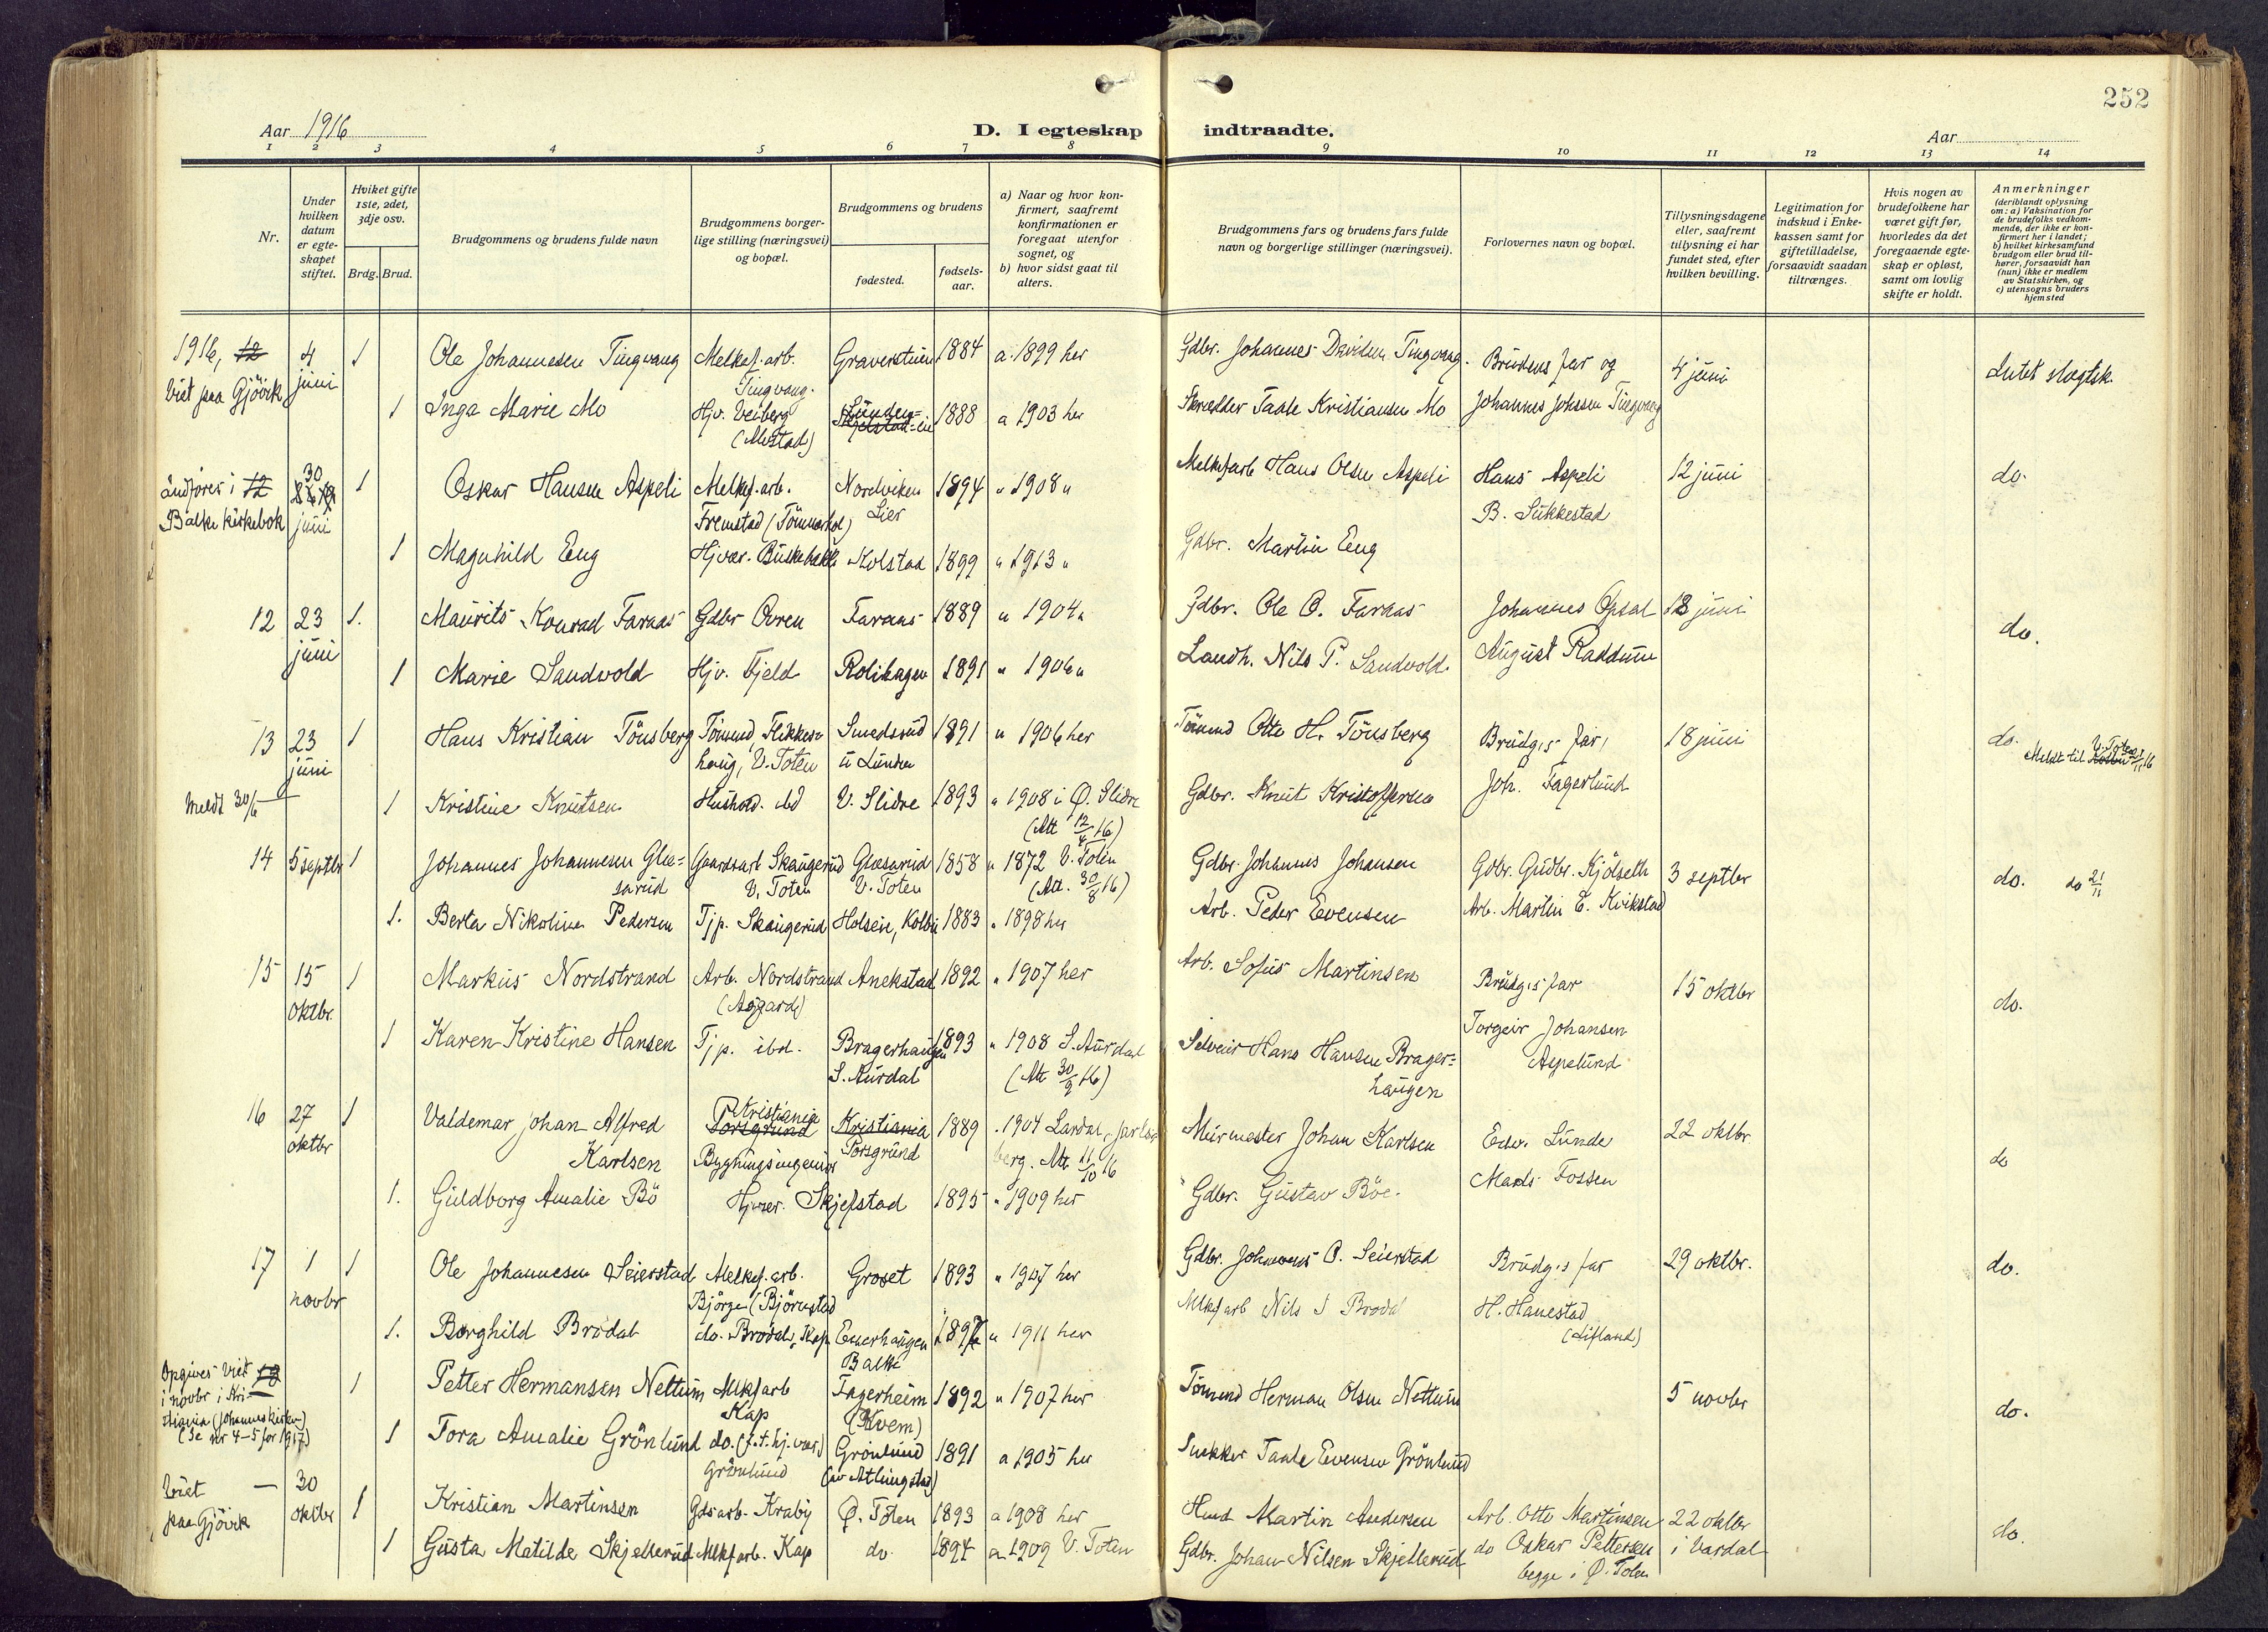 252
Aar 1916
D. I egteskap indtraadte.
Aar
1 2 3 4 5 6 7 8 9 10 11 12 13 14
Nr.
Under hvilken datum er egteskapet stiftet.
Hviket gifte 1ste, 2det, 3dje osv.
Brdg. Brud.
Brudgommens og brudens fulde navn
Brudgommens borgerlige stilling (næringsvei) og bopæl.
Brudgommens og brudens
fødested.
fødselsaar.
a) Naar og hvor konfirmert, saafremt konfirmationen er foregaat utenfor sognet, og
b) hvor sidst gaat til alters.
Brudgommens fars og brudens fars fulde navn og borgerlige stillinger (næringsvei).
Forlovernes navn og bopæl.
Tillysningsdagene eller, saafremt tillysning ei har fundet sted, efter hvilken bevilling.
Legitimation for indskud i Enkekassen samt for giftetilladelse, forsaavidt saadan tiltrænges.
Hvis nogen av brudefolkene har været gift før, hvorledes da det foregaaende egteskap er opløst, samt om lovlig skifte er holdt.
Anmerkninger (deriblandt oplysning om: a) Vaksination for de brudefolks vedkommende, der ikke er konfirmert her i landet; b) hvilket kirkesamfund brudgom eller brud tilhører, forsaavidt han (hun) ikke er medlem av Statskirken, og c) utensogns bruders hjemsted
1916, 12 4 juni 1 Ole Johannesen Tingvang Melkef. arb. Tingvang. Graverstuen 1884 a 1899 her Gdbr. Johannes Davidsen Tingvang. Brudens far og 4 juni Intet slegtsk.
Viet paa Gjövik 1 Inga Marie Mo Hjv. Veiberg (Alvstad) 1888 a 1903 her Skrædder Taale Kristiansen Mo Johannes Johssen Tingvang
indföres i 12 Balke kirkebok 30 juni 1 Oskar Hansen Aspeli Melkef. arb. Fremstad Nordviken Lier 1894 " 1908 " Melkefarb Hans Olsen Aspeli Hans Aspeli 12 juni do.
B. Sukkestad
1 Magnhild Eng Hjvær. Buskebakk Kolstad 1899 " 1913 " Gdbr. Martin Eng
12 23 juni 1. Maurits Konrad Faraas Gdbr Ovren Faraas 1889 " 1904 " Gdbr. Ole O. Faraas Johannes Opsal 18 juni do.
1 Marie Sandvold Hjv. Fjeld Rolihagen 1891 " 1906 " Landh. Nils P. Sandvold August Raddum
13 23 juni 1 Hans Kristian Tönsberg Tömmd, Flikkeshaug, V. Toten Smedsrud u Lunden 1891 " 1906 her Tömmd Otto H. Tönsberg Brudg.s far, 18 juni do. Meldt til V. Toten
Meldt 30/6 1 Kristine Knutsen Hushold. ibd V. Slidre 1893 " 1908 i Ø. Slidre (Att 12/4 16) Gdbr. Knut Kristoffersen Joh. Fagerlund
14 5 septbr 1 Johannes Johannesen Glæsarud Gaardsarb Skaugerud V. Toten Glæsarud V. Toten 1858 " 1872 V. Toten (Att. 30/8 16) Gdbr. Johannes Johansen Gdbr. Gudbr. Kjölseth 3 septbr do. do 21/11
1. Berta Nikoline Pedersen Tjp. Skaugerud Holsein, Kolbu 1883 " 1898 her Arb. Peder Evensen Arb. Martin E. Kvikstad
15 15 oktbr. 1 Markus Nordstrand Arb. Nordstrand (Aagaard) Anekstad 1892 " 1907 her Arb. Sofus Martinsen Brudg.s far 15 oktbr do.
1 Karen Kristine Hansen Tjp. ibd. Bragerhaugen S. Aurdal 1893 " 1908 S. Aurdal (Att 30/9 16) Selveier Hans Hansen Bragerhaugen Torgeir Johansen Aspelund
16 27 oktbr 1 Valdemar Johan Alfred Karlsen Kristiania Porsgrund Bygningsingeniør Kristiania Porsgrund 1889 " 1904 Lardal, Jarlsberg. Att 11/10 16 Murmester Johan Karlsen Edv. Lunde 22 oktbr do
1. Guldborg Amalie Bö Hjvær. Skjefstad 1895 " 1909 her Gdbr. Gustav Böe. Mads Fossen
17 1 novbr 1 Ole Johannesen Seierstad Melkef. arb. Björge (Björnstad Groset 1893 " 1907 her Gdbr. Johannes O. Seierstad Brudg.s far 29 oktbr. do.
1. Borghild Brödal do. Brödal, Kap Enerhaugen Balke 1897 " 1911 her Mlkfarb Nils J Brodal H. Hanestad
Opgives viet 18 i novbr i Kristiania (Johanneskirken) (Se nr 4-5 for 1917) 1 Petter Hermansen Nettum Mlkfarb Kap Fagerheim (Kvem) 1892 " 1907 her Tömmd Herman Olsen Nettum 5 novbr do.
1 Tora Amalie Grönlund do. (f.t. hj.vær.) Grönlund Grönlund 1891 a 1905 her Snekker Taale Evensen Grönlund
Viet paa Gjövik — 30 oktbr 1 Kristian Martinsen Gdsarb. Kraby Ø. Toten 1893 a 1908 her Hmd Martin Andersen Arb. Otto Martinsen 22 oktbr i Vardal do.
1 Gusta Matilde Skjellerud Mlkfarb. Kap do. 1894 a 1909 V. Toten Gdbr. Johan Nilsen Skjellerud do Oskar Pettersen
begge i Ø. Toten